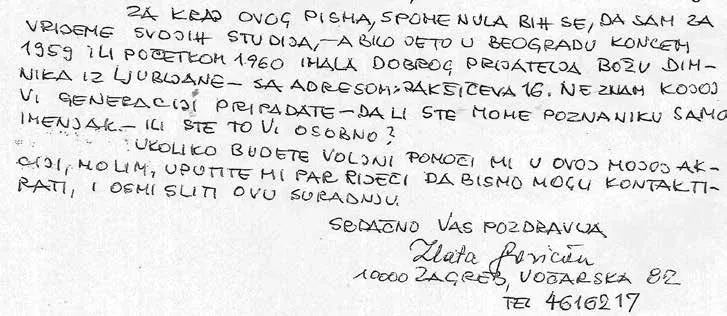 ZA KRAJ OVOG PISMA, SPOMENULA BIH SE, DA SAM ZA
VRIJEME SVOJIH STUDIJA,-A BILO JE TO U BEOGRADU KONCEM
1959 ILI POČETKOM 1960 IMALA DOBROG PRIJATELJA BOŽU DIM-
NIKA IZ LJUBLJANE- SA ADRESOM: JAKŠIČEVA 16. NE ZNAM KOJOJ
VI GENERACIJI PRIPADATE-DA LI STE MOME POZNANIKU SAMO
IMENJAK- ILI STE TO VI OSOBNO?
UKOLIKO BUDETE VOLJNI POMOĆI MI U OVOJ MOJOJ AK-
CIJI, MOLIM, UPUTITE MI PAR RIJEČI DA BISMO MOGLI KONTAKTI-
RATI, I OSMISLITI OVU SURADNJU.
SRDAČNO VAS POZDRAVLJA
Zlata
10000 ZAGREB, VOĆARSKA 82
TEL 4616217